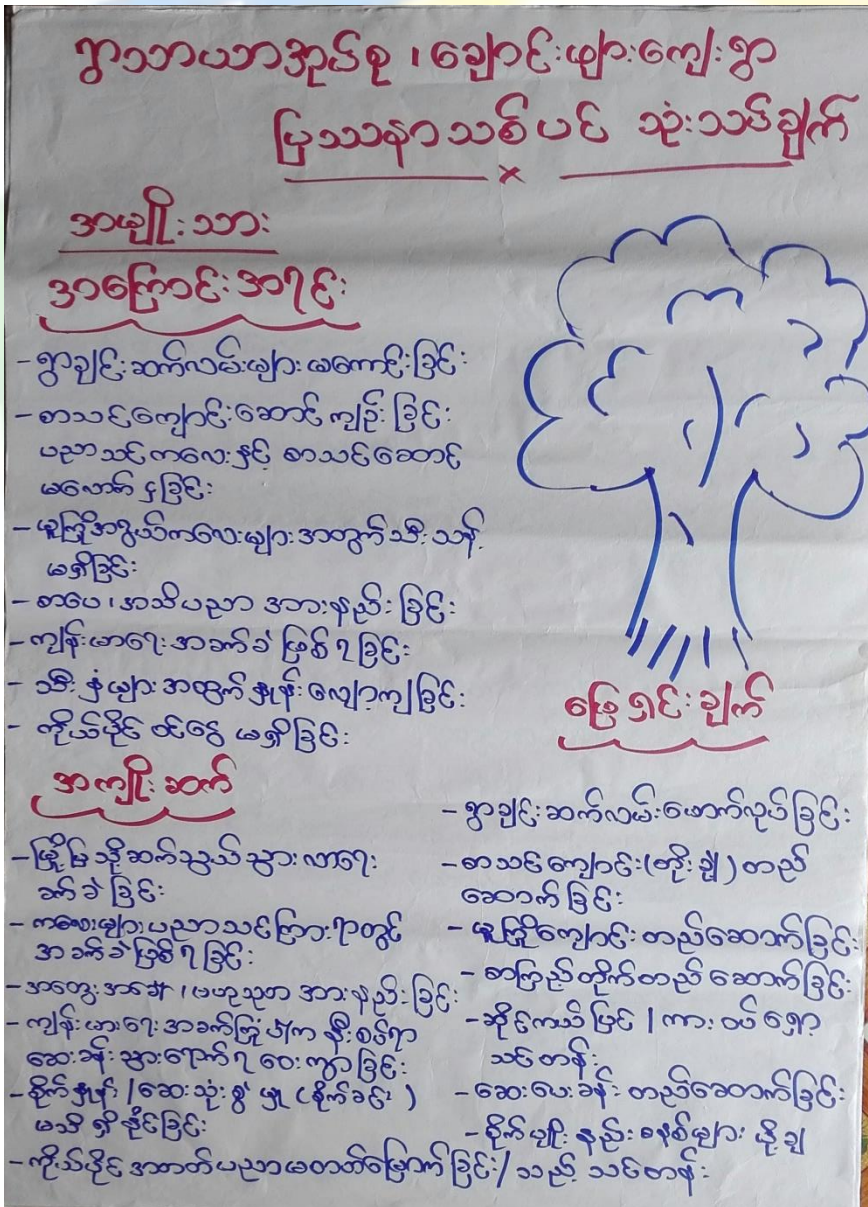 ရွာသာယာအုပ်စု ၊ ချောင်းဖျားကျေးရွာ
ပြဿနာသစ်ပင် သုံးသပ်ချက်
အမျိုးသား
အကြောင်းအရင်း
- ရွာချင်းဆက်လမ်းများ မကောင်းခြင်း
- စာသင်ကျောင်းဆောင် ကျဉ်းခြင်း
ပညာသင်ကလေးနှင့် စာသင်ဆောင်
မလောက်ငှခြင်း
- မူကြိုအရွယ်ကလေးများအတွက် သီးသန့်
မရှိခြင်း
- စာပေ ၊ အသိပညာ အားနည်းခြင်း
- ကျန်းမာရေး အခက်ခဲ ဖြစ်ရခြင်း
- သီးနှံများ အထွက်နှုန်း လျော့ကျခြင်း
- ကိုယ်ပိုင် ဝင်ငွေ မရှိခြင်း
အကျိုးဆက်
- မြို့မြသို့ ဆက်သွယ်သွားလာရေး
ခက်ခဲခြင်း
- ကလေးများ ပညာသင်ကြားရာတွင်
အခက်ခဲဖြစ်ရခြင်း
- အတွေးအခေါ် ၊ ဗဟုသုတ အားနည်းခြင်း
- ကျန်းမာရေး အခက်ကြုံပါက နီးစပ်ရာ
ဆေးခန်း သွားရောက်ရ ဝေးကွာခြင်း
- စိုက်နှုန်း / ဆေးသုံးစွဲမှု (စိုက်ခင်း)
မသိရှိနိုင်ခြင်း
- ကိုယ်ပိုင် အတတ်ပညာ မတတ်မြောက်ခြင်း /
ဖြေရှင်းချက်
- ရွာချင်းဆက်လမ်း ဖောက်လုပ်ခြင်း
- စာသင်ကျောင်း (တိုးချဲ့) တည်
ဆောက်ခြင်း
- မူကြိုကျောင်း တည်ဆောက်ခြင်း
- စာကြည့်တိုက် တည်ဆောက်ခြင်း
- ဆိုင်ကယ်ပြင် / ကား ဝပ်ရှော့
သင်တန်း
- ဆေးပေးခန်း တည်ဆောက်ခြင်း
- စိုက်မျိုး နည်းစနစ်များ ပို့ချ
သည့် သင်တန်း